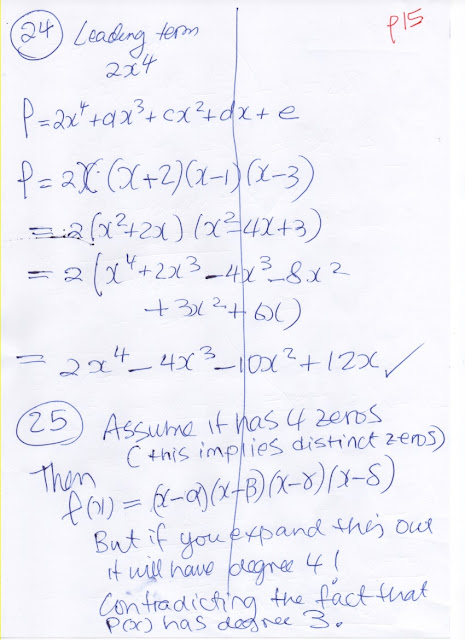 p15
24 Leading term
2x⁴
P=2x⁴+ax³+cx²+dx+e
P=2x(x+2)(x-1)(x-3)
=2(x²+2x)(x²-4x+3)
=2(x⁴+2x³-4x³-8x²
+3x²+6x)
=2x⁴-4x³-10x²+12x ✓
25 Assume it has 4 zeros
(this implies distinct zeros)
Then
P(x)=(x-α)(x-β)(x-γ)(x-δ)
But if you expand this out
it will have degree 4!
Contradicting the fact that
P(x) has degree 3.